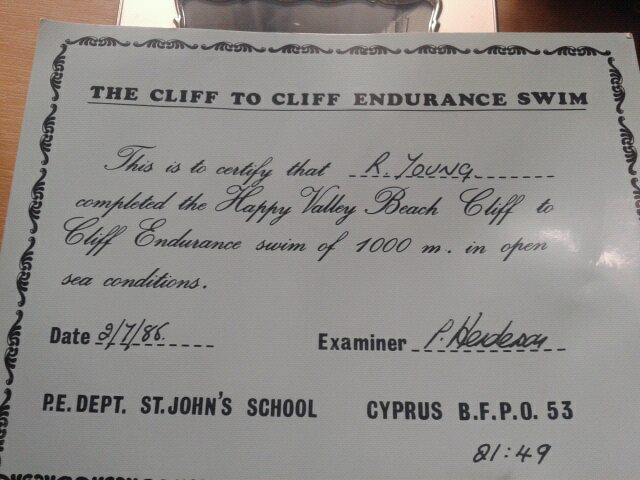 THE CLIFF TO CLIFF ENDURANCE SWIM
This is to certify that R. YOUNG
completed the Happy Valley Beach Cliff to
Cliff Endurance swim of 1000 m. in open
sea conditions.
Date 2/7/86. Examiner P. Henderson
P.E. DEPT. ST. JOHN'S SCHOOL CYPRUS B.F.P.O. 53
21:49